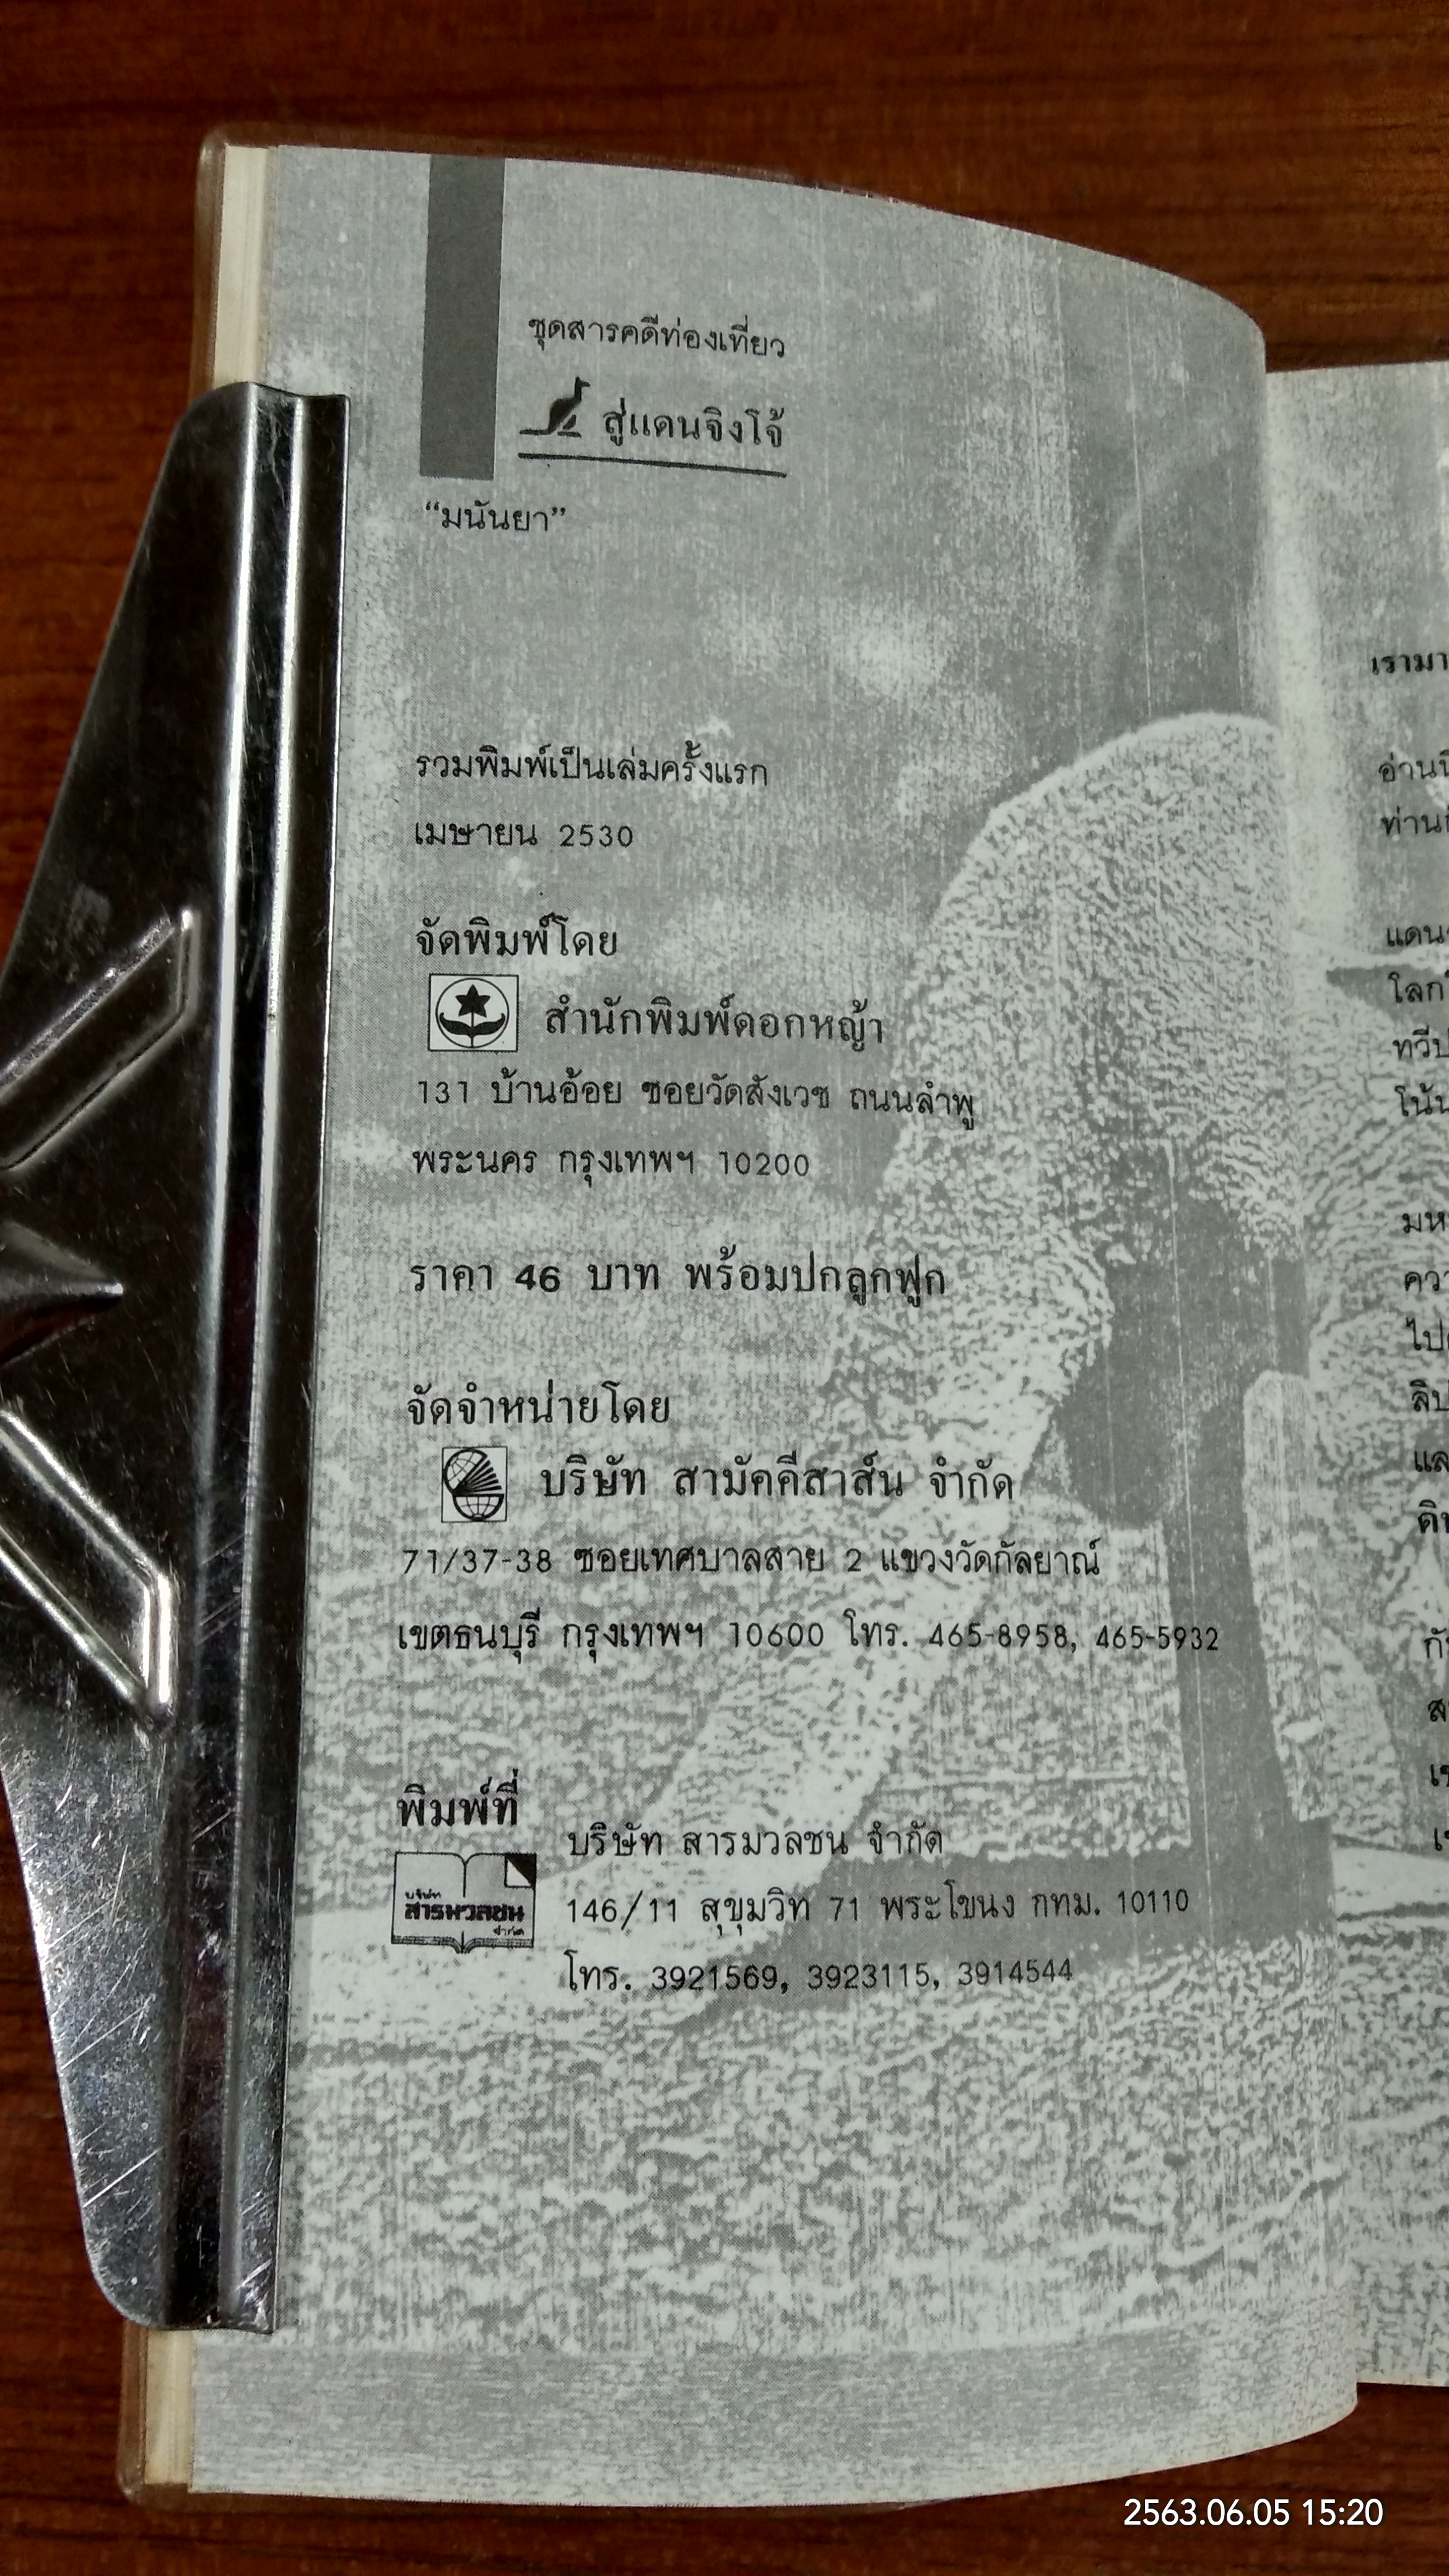 ชุดสารคดีท่องเที่ยว
สู่แดนจิงโจ้
“มนันยา”
รวมพิมพ์เป็นเล่มครั้งแรก
เมษายน 2530
จัดพิมพ์โดย
สำนักพิมพ์ดอกหญ้า
131 บ้านอ้อย ซอยวัดสังเวช ถนนลำพู
พระนคร กรุงเทพฯ 10200
ราคา 46 บาท พร้อมปกลูกฟูก
จัดจำหน่ายโดย
บริษัท สามัคคีสาส์น จำกัด
71/37-38 ซอยเทศบาลสาย 2 แขวงวัดกัลยาณ์
เขตธนบุรี กรุงเทพฯ 10600 โทร. 465-8958, 465-5932
พิมพ์ที่
บริษัท
สารมวลชน
จำกัด
บริษัท สารมวลชน จำกัด
146/11 สุขุมวิท 71 พระโขนง กทม. 10110
โทร. 3921569, 3923115, 3914544
เรามา
แดน
โลก
โน้น
2563.06.05 15:20